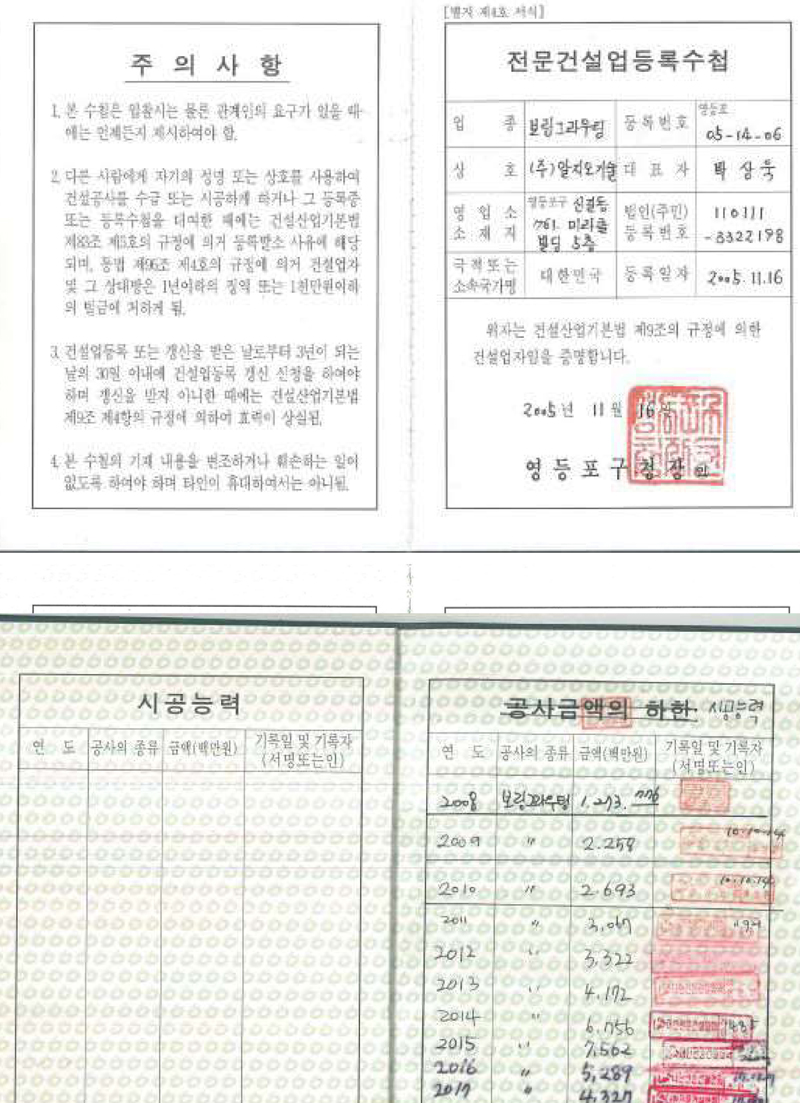 [별지 제4호 서식]
주 의 사 항
1. 본 수첩은 입찰시는 물론 관계인의 요구가 있을 때
에는 언제든지 제시하여야 함.
2. 다른 사람에게 자기의 성명 또는 상호를 사용하여
건설공사를 수급 또는 시공하게 하거나 그 등록증
또는 등록수첩을 대여한 때에는 건설산업기본법
제83조 제5호의 규정에 의거 등록말소 사유에 해당
되며, 동법 제96조 제4호의 규정에 의거 건설업자
및 그 상대방은 1년이하의 징역 또는 1천만원이하
의 벌금에 처하게 됨.
3. 건설업등록 또는 갱신을 받은 날로부터 3년이 되는
날의 30일 이내에 건설업등록 갱신 신청을 하여야
하며 갱신을 받지 아니한 때에는 건설산업기본법
제9조 제4항의 규정에 의하여 효력이 상실됨.
4. 본 수첩의 기재 내용을 변조하거나 훼손하는 일이
없도록 하여야 하며 타인이 휴대하여서는 아니됨.
전문건설업등록수첩
업 종 보링그라우팅 등록번호 영등포 05-14-06
상 호 (주)알지오기술 대 표 자 박상욱
영 업 소 소 재 지 영등포구 신길동 761. 미리클 빌딩 5층 법인(주민) 등록번호 110111 -3322198
국적또는 소속국가명 대한민국 등록일자 2005.11.16
위자는 건설산업기본법 제9조의 규정에 의한
건설업자임을 증명합니다.
2005년 11월 16일
영등포구청장 인
시공능력
연 도 공사의 종류 금액(백만원) 기록일 및 기록자 (서명또는인)
공사금액의 하한 시공능력
연 도 공사의 종류 금액(백만원) 기록일 및 기록자 (서명또는인)
2008 보링그라우팅 1,273. 776
2009 〃 2.258 10.10.14
2010 〃 2.693 10.10.14
2011 〃 3,067
2012 〃 3,322
2013 〃 4,172
2014 〃 6,756
2015 〃 7,562
2016 〃 5,289
2017 〃 4,327